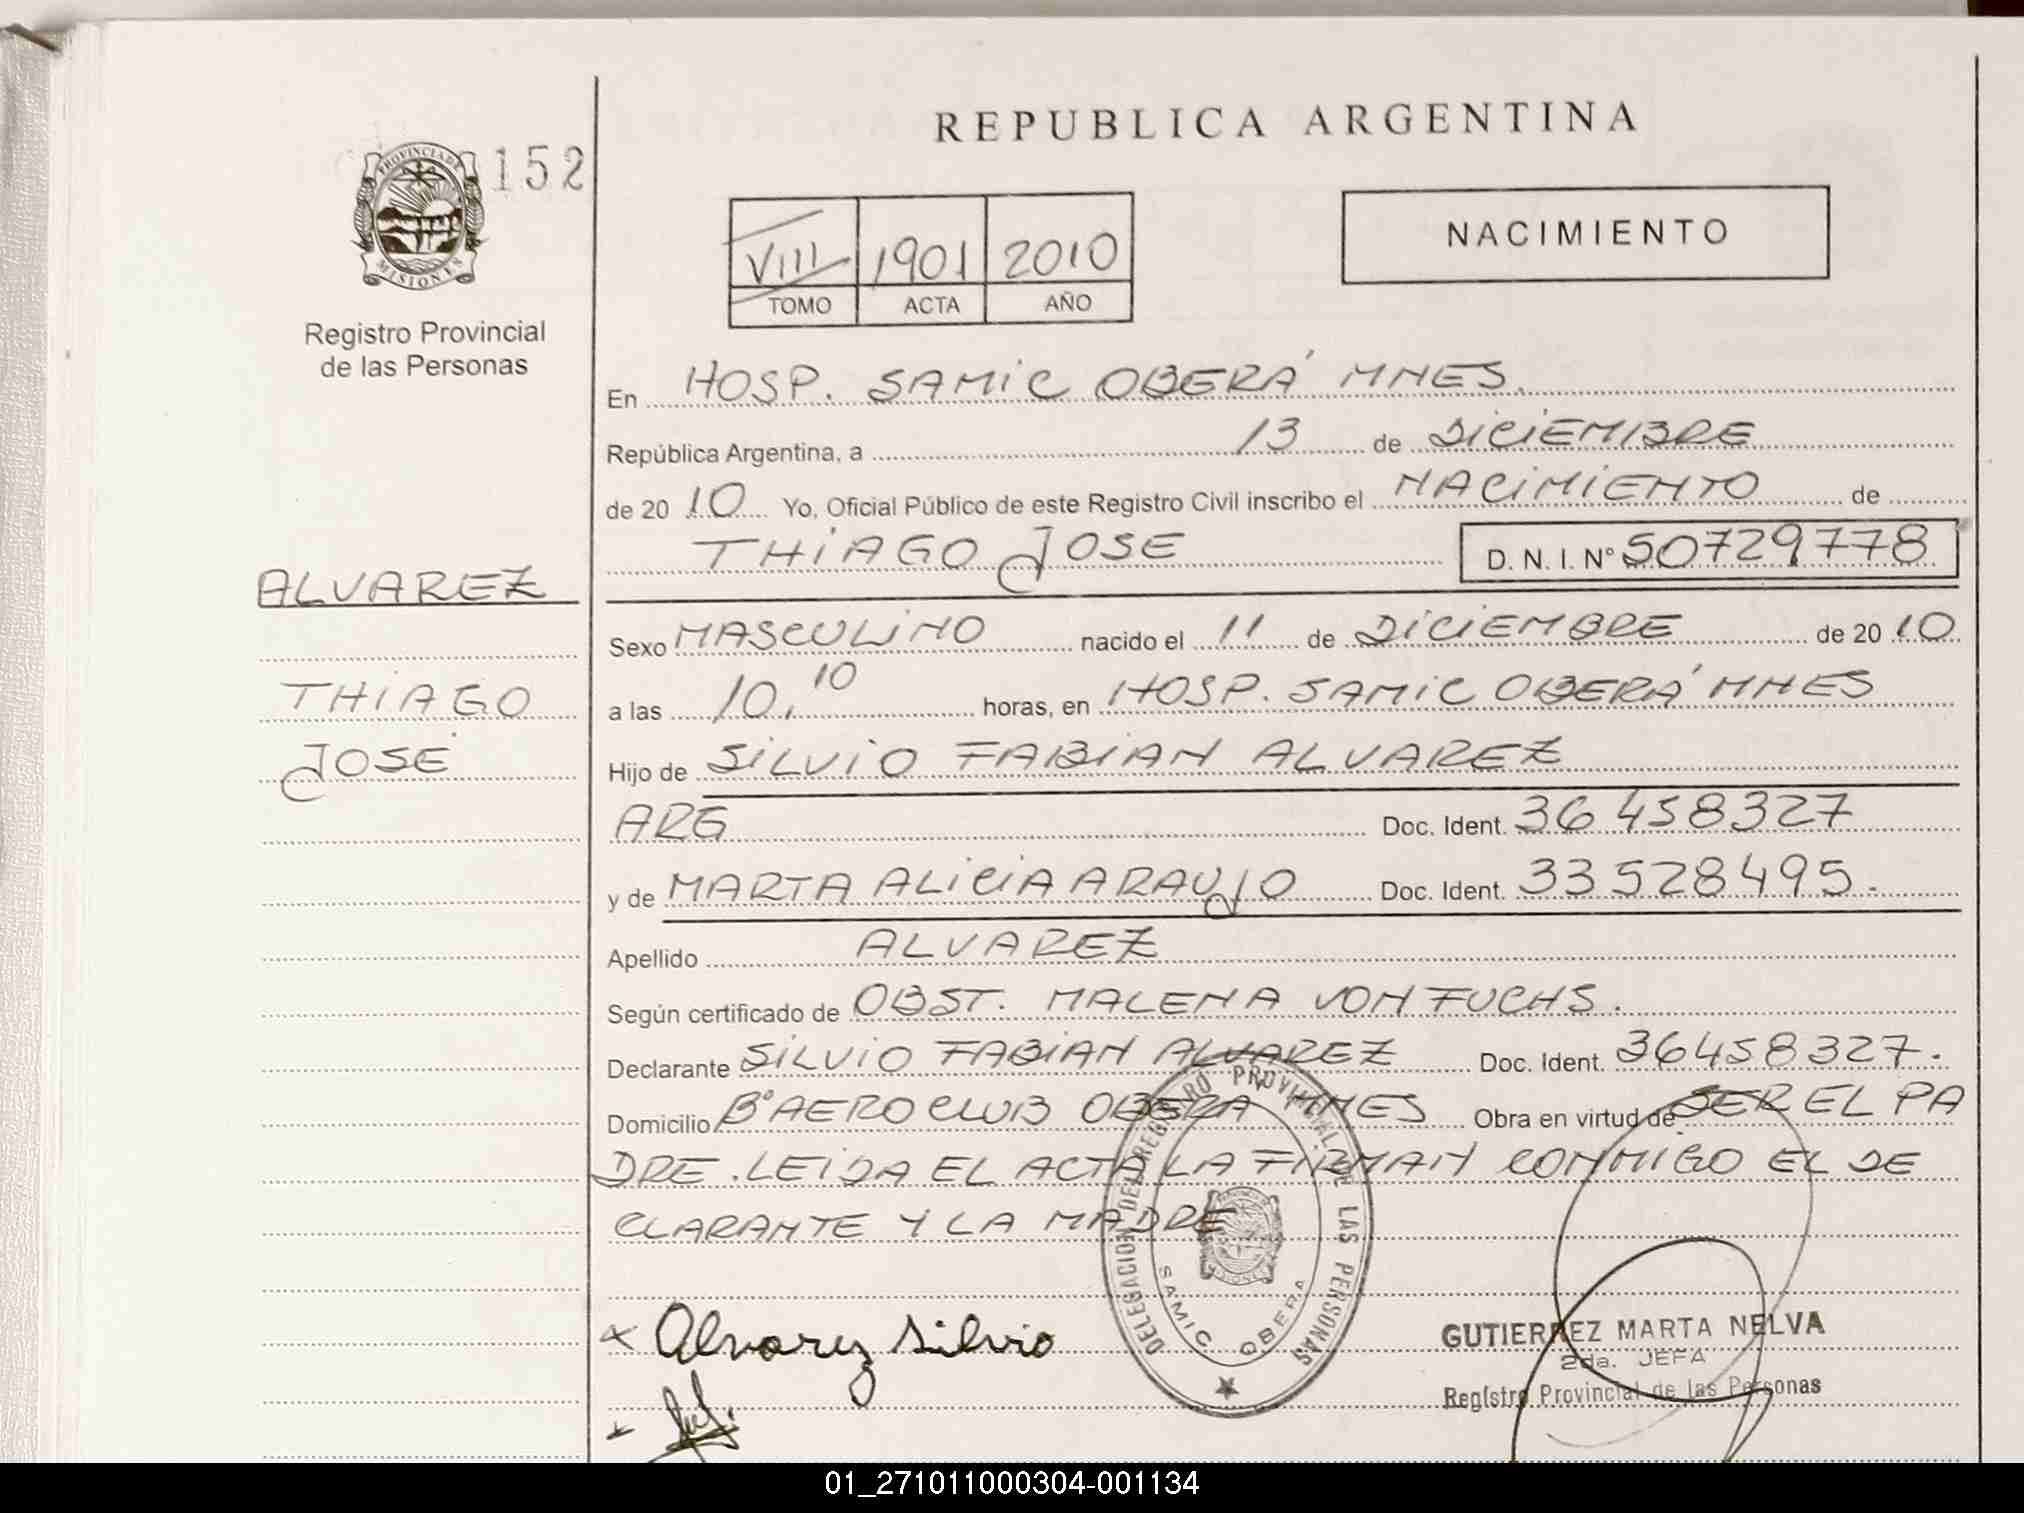 REPUBLICA ARGENTINA
PROVINCIA DE
MISIONES
152
Registro Provincial
de las Personas
VIII 1901 2010
TOMO ACTA AÑO
NACIMIENTO
En HOSP. SAMIC OBERÁ MNES.
República Argentina, a 13 de DICIEMBRE
de 2010 Yo, Oficial Público de este Registro Civil inscribo el NACIMIENTO de
THIAGO JOSE D. N. I. Nº 50729778
ALVAREZ
THIAGO
JOSÉ
Sexo MASCULINO nacido el 11 de DICIEMBRE de 2010
a las 10,10 horas, en HOSP. SAMIC OBERÁ MNES
Hijo de SILVIO FABIAN ALVAREZ
ARG Doc. Ident. 36 458327
y de MARTA ALICIA ARAUJO Doc. Ident. 33 528495.
Apellido ALVAREZ
Según certificado de OBST. MALENA VON FUCHS.
Declarante SILVIO FABIAN ALVAREZ Doc. Ident. 36458327.
Domicilio Bº AEROCLUB OBERA MNES Obra en virtud de SER EL PA
DRE. LEIDA EL ACTA LA FIRMAN CONMIGO EL DE
CLARANTE Y LA MADRE
DELEGACION DEL REGISTRO PROVINCIAL DE LAS PERSONAS
SAMIC OBERA
Alvarez Silvio
GUTIERREZ MARTA NELVA
2da. JEFA
Registro Provincial de las Personas
01_271011000304-001134